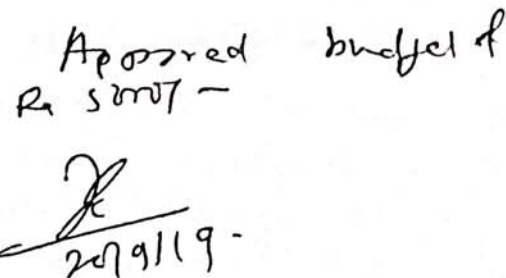 Approved budget of
Rs 5000/-
20/9/19.